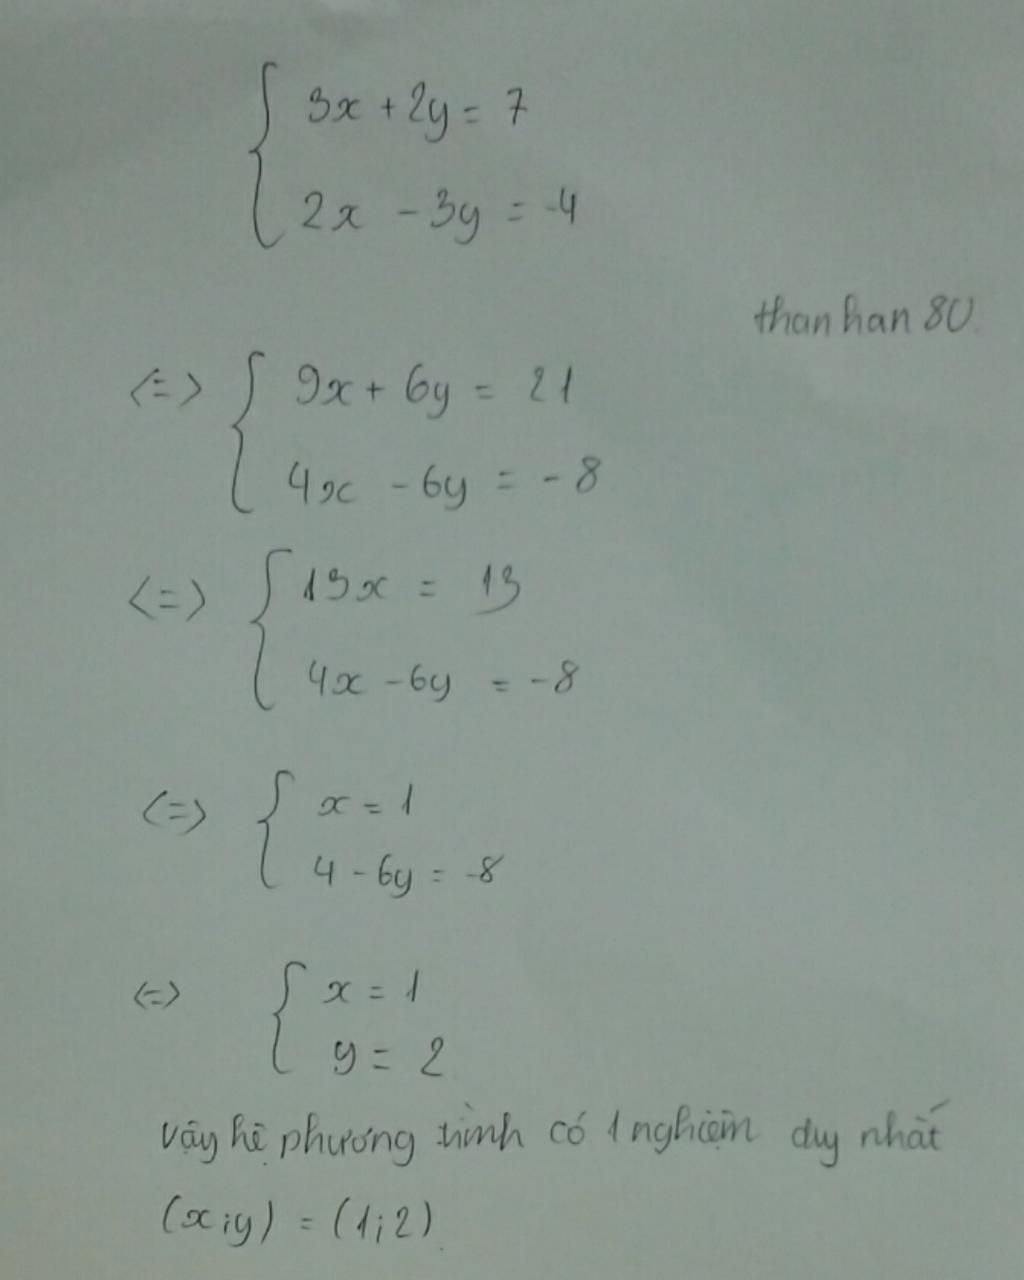 3x + 2y = 7
2x - 3y = -4
thanhan80
<=> 9x + 6y = 21
4x - 6y = -8
<=> 13x = 13
4x - 6y = -8
<=> x = 1
4 - 6y = -8
<=> x = 1
y = 2
vậy hệ phương trình có 1 nghiệm duy nhất
(x;y) = (1;2)